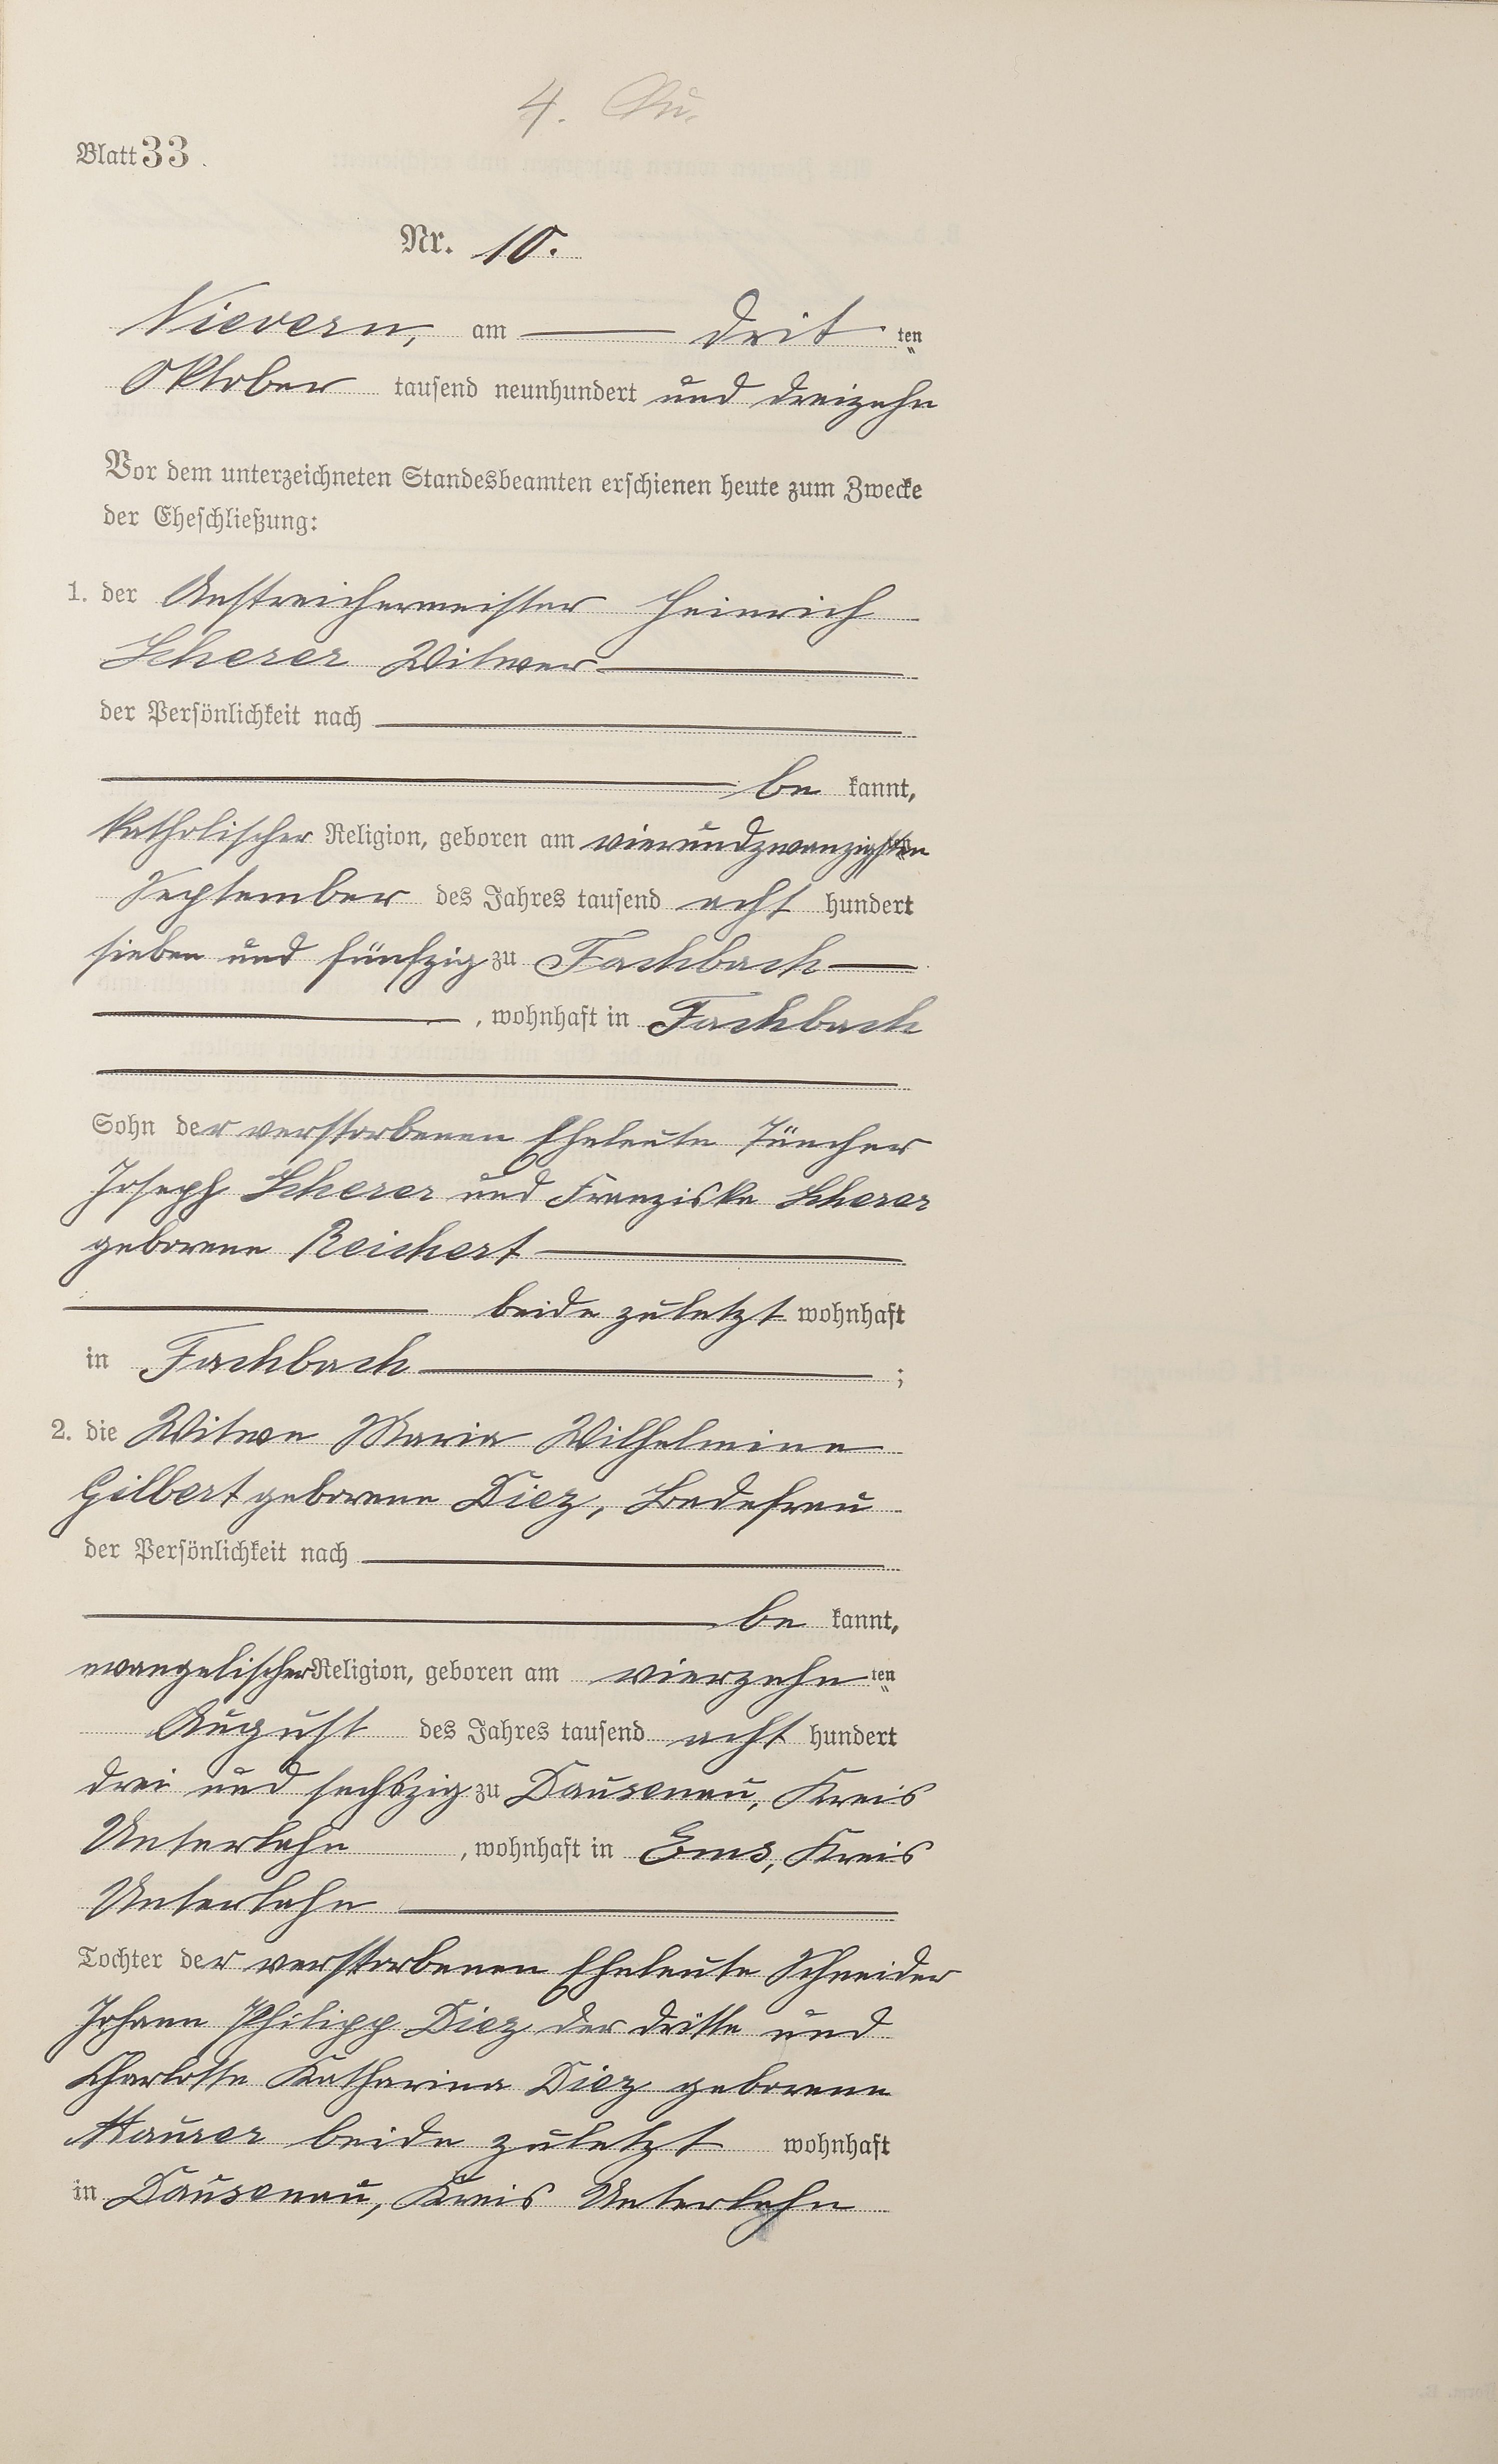 4.
Blatt 33.
Nr. 10.
Nievern, am drit ten
Oktober tausend neunhundert und dreizehn
Vor dem unterzeichneten Standesbeamten erschienen heute zum Zwecke
der Eheschließung:
1. der Anstreichermeister Heinrich
Scherer Witwer
der Persönlichkeit nach
be kannt,
katholischer Religion, geboren am vierundzwanzigsten
September des Jahres tausend acht hundert
sieben und fünfzig zu Fachbach
, wohnhaft in Fachbach
Sohn der verstorbenen Eheleute Tüncher
Joseph Scherer und Franziska Scherer
geborene Reichert
beide zuletzt wohnhaft
in Fachbach ;
2. die Witwe Maria Wilhelmine
Gilbert geborene Diez, Badefrau
der Persönlichkeit nach
be kannt,
evangelischer Religion, geboren am vierzehn ten
August des Jahres tausend acht hundert
drei und sechszig zu Dausenau, Kreis
Unterlahn , wohnhaft in Ems, Kreis
Unterlahn
Tochter der verstorbenen Eheleute Schneider
Johann Philipp Diez der dritte und
Charlotte Katharina Diez geborene
Maurer beide zuletzt wohnhaft
in Dausenau, Kreis Unterlahn